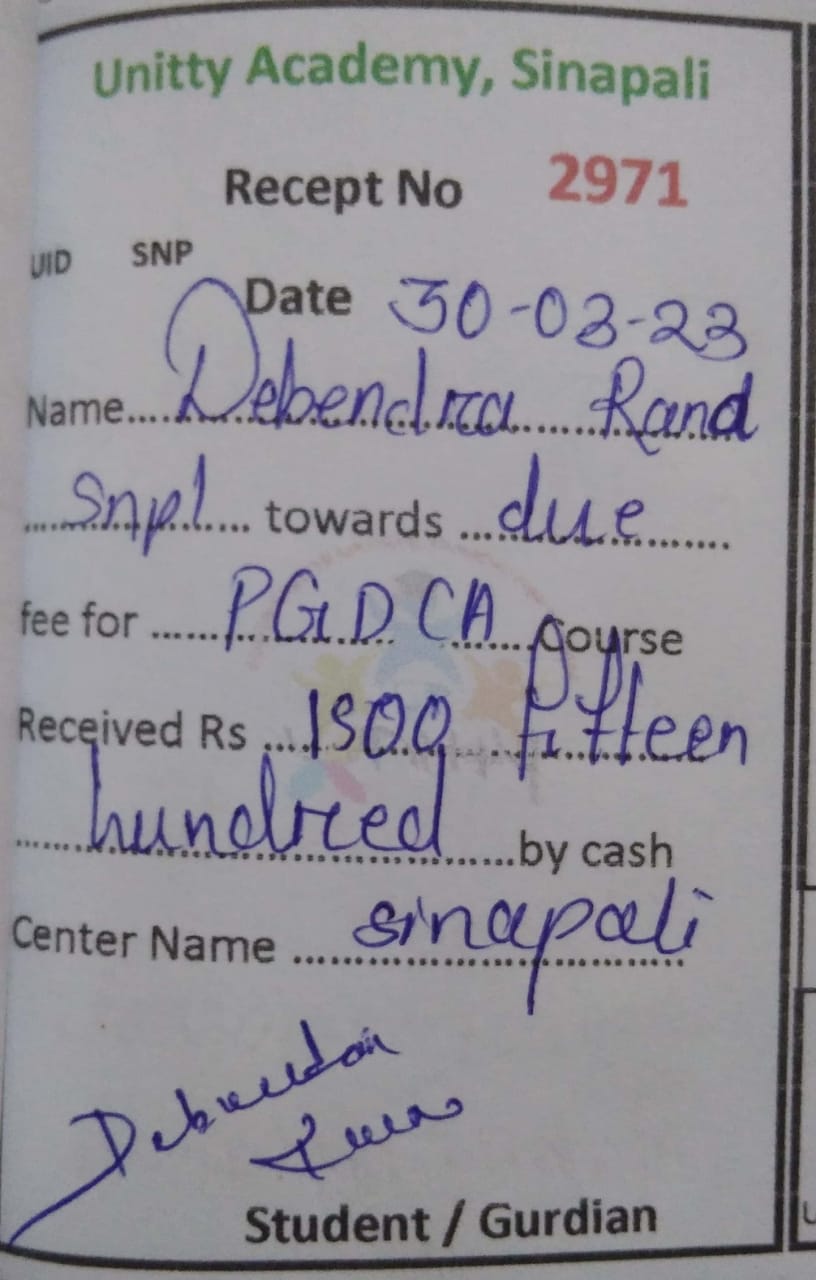 Unitty Academy, Sinapali
Recept No 2971
UID SNP
Date 30-03-23
Name.....Debendra Rand
Snpl towards due
fee for PGDCA Course
Received Rs 1500 fifteen
hundreed by cash
Center Name sinapali
Student / Gurdian